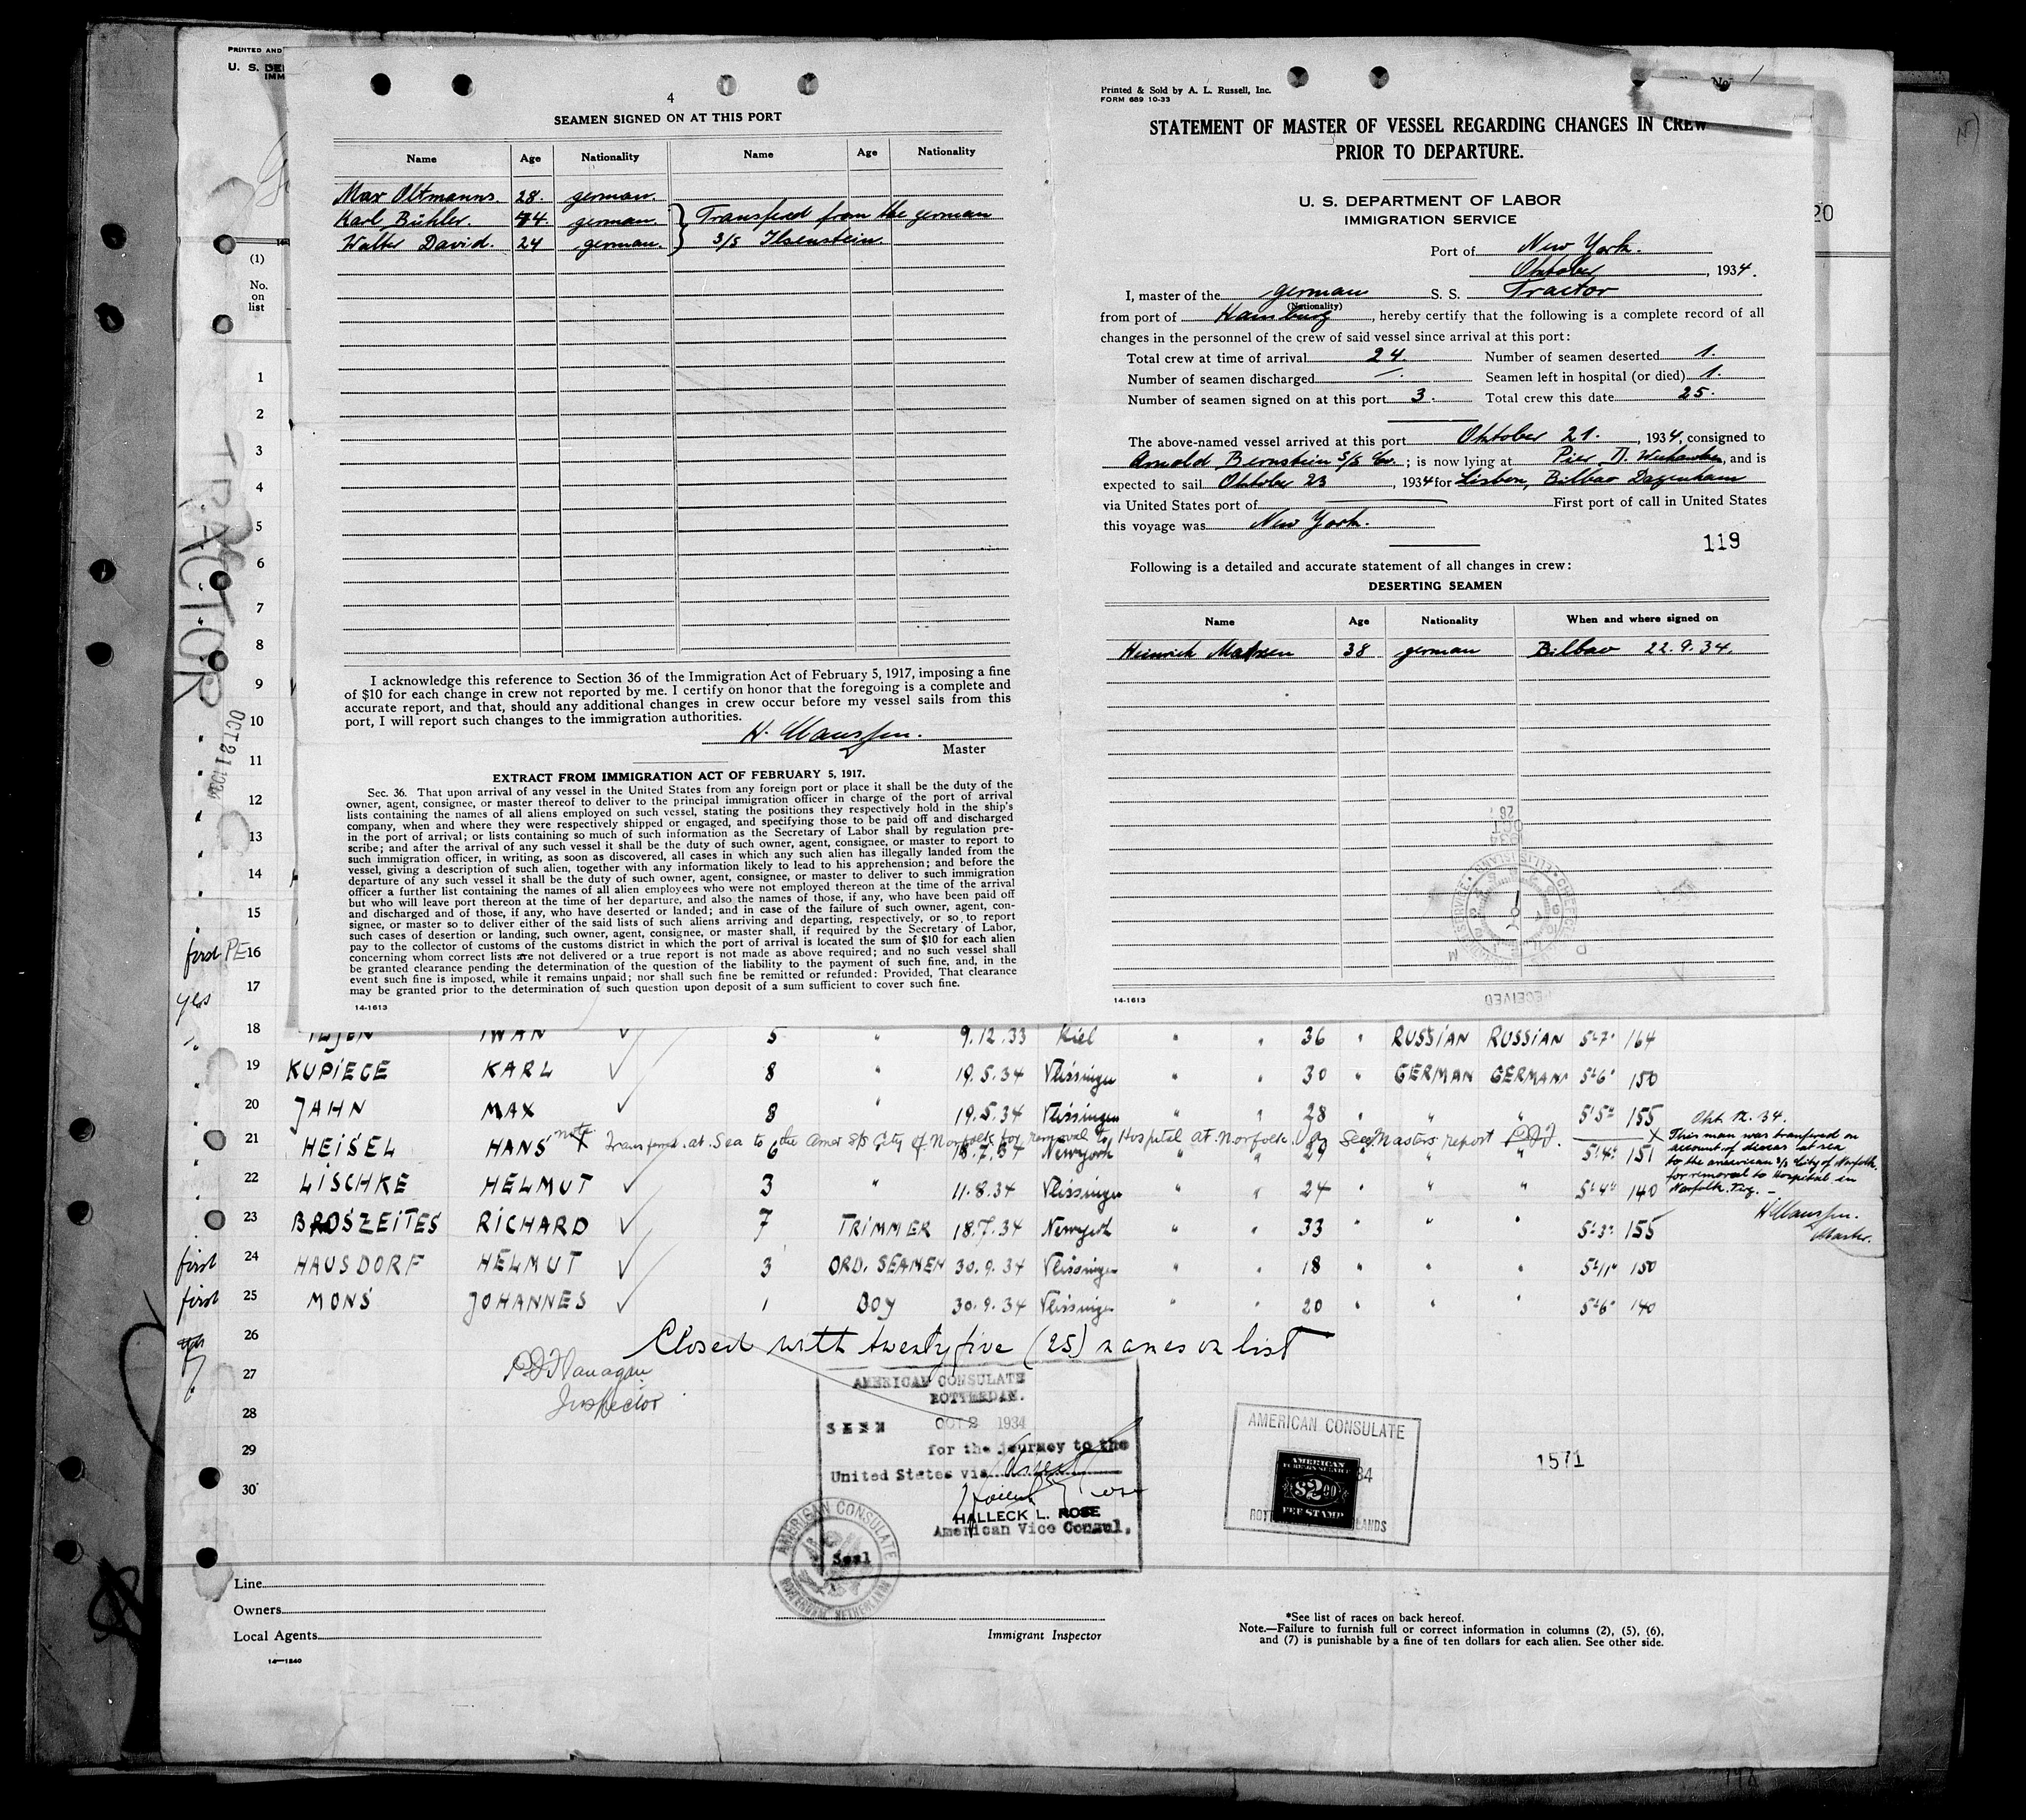 PRINTED AND
U. S. DE
IMM
4
SEAMEN SIGNED ON AT THIS PORT
Name Age Nationality Name Age Nationality
Max Oltmanns. 28. german.
Karl Bühler. 44 german. } Transferd from the german
Walter David. 24 german. } S/S Ilsenstein.
I acknowledge this reference to Section 36 of the Immigration Act of February 5, 1917, imposing a fine
of $10 for each change in crew not reported by me. I certify on honor that the foregoing is a complete and
accurate report, and that, should any additional changes in crew occur before my vessel sails from this
port, I will report such changes to the immigration authorities.
H. Claussen.
Master
EXTRACT FROM IMMIGRATION ACT OF FEBRUARY 5, 1917.
Sec. 36. That upon arrival of any vessel in the United States from any foreign port or place it shall be the duty of the
owner, agent, consignee, or master thereof to deliver to the principal immigration officer in charge of the port of arrival
lists containing the names of all aliens employed on such vessel, stating the positions they respectively hold in the ship's
company, when and where they were respectively shipped or engaged, and specifying those to be paid off and discharged
in the port of arrival; or lists containing so much of such information as the Secretary of Labor shall by regulation pre-
scribe; and after the arrival of any such vessel it shall be the duty of such owner, agent, consignee, or master to report to
such immigration officer, in writing, as soon as discovered, all cases in which any such alien has illegally landed from the
vessel, giving a description of such alien, together with any information likely to lead to his apprehension; and before the
departure of any such vessel it shall be the duty of such owner, agent, consignee, or master to deliver to such immigration
officer a further list containing the names of all alien employees who were not employed thereon at the time of the arrival
but who will leave port thereon at the time of her departure, and also the names of those, if any, who have been paid off
and discharged and of those, if any, who have deserted or landed; and in case of the failure of such owner, agent, con-
signee, or master so to deliver either of the said lists of such aliens arriving and departing, respectively, or so to report
such cases of desertion or landing, such owner, agent, consignee, or master shall, if required by the Secretary of Labor,
pay to the collector of customs of the customs district in which the port of arrival is located the sum of $10 for each alien
concerning whom correct lists are not delivered or a true report is not made as above required; and no such vessel shall
be granted clearance pending the determination of the question of the liability to the payment of such fine, and, in the
event such fine is imposed, while it remains unpaid; nor shall such fine be remitted or refunded: Provided, That clearance
may be granted prior to the determination of such question upon deposit of a sum sufficient to cover such fine.
14-1613
Printed & Sold by A. L. Russell, Inc.
FORM 689 10-33
No. 1
STATEMENT OF MASTER OF VESSEL REGARDING CHANGES IN CREW
PRIOR TO DEPARTURE.
U. S. DEPARTMENT OF LABOR
IMMIGRATION SERVICE
Port of New York.
Oktober, 1934.
I, master of the german S. S. Tractor
(Nationality)
from port of Hamburg, hereby certify that the following is a complete record of all
changes in the personnel of the crew of said vessel since arrival at this port:
Total crew at time of arrival 24. Number of seamen deserted 1.
Number of seamen discharged /. Seamen left in hospital (or died) 1.
Number of seamen signed on at this port 3. Total crew this date 25.
The above-named vessel arrived at this port Oktober 21., 1934, consigned to
Arnold Bernstein S/S Co.; is now lying at Pier II. Weehawken, and is
expected to sail Oktober 23, 1934 for Lisbon, Bilbao Dagenham
via United States port of First port of call in United States
this voyage was New York.
119
Following is a detailed and accurate statement of all changes in crew:
DESERTING SEAMEN
Name Age Nationality When and where signed on
Heinrich Matzen 38 german Bilbao 22.9.34.
RECEIVED
14-1613
20
TRACTOR
OCT 21 1934
(1)
No.
on
list
1
2
3
4
5
6
7
8
9
10
11
12
13
14
15
first PE 16
yes 17
18 ILJEN IWAN ✓ 5 " 9.12.33 Kiel " " 36 " RUSSIAN RUSSIAN 5'7" 164
19 KUPIECE KARL ✓ 8 " 19.5.34 Vlissingen " " 30 " GERMAN GERMAN 5'6" 150
20 JAHN MAX ✓ 8 " 19.5.34 Vlissingen " " 28 " " " 5'5" 155
note X Transferred at Sea to the Amer S/S City of Norfolk for removal to Hospital at Norfolk. Va See Masters report
21 HEISEL HANS 6 18.7.34 Newyork " " 29 " " " 5'4" 151
Okt. 12. 34.
X This man was transfered on
account of diseas at sea
to the american S/S City of Norfolk
for removal to Hospital in
Norfolk. Virg. —
H. Claussen.
Master.
22 LISCHKE HELMUT ✓ 3 " 11.8.34 Vlissingen " " 24 " " " 5'4" 140
23 BROSZEITES RICHARD ✓ 7 TRIMMER 18.7.34 Newyork " " 33 " " " 5'3" 155
first 24 HAUSDORF HELMUT ✓ 3 ORD. SEAMEN 30.9.34 Vlissingen " " 18 " " " 5'11" 150
first 25 MONS JOHANNES ✓ 1 BOY 30.9.34 Vlissingen " " 20 " " " 5'6" 140
26 Closed with twenty five (25) names on list
27 Flanagan
Inspector
28
29
30
AMERICAN CONSULATE
ROTTERDAM.
SEEN OCT 2 1934
for the journey to the
United States via
HALLECK L. ROSE
American Vice Consul.
Seal
AMERICAN CONSULATE
ROTTERDAM, NETHERLANDS
AMERICAN CONSULATE
AMERICAN
FOREIGN SERVICE
$2.00
FEE STAMP
34
ROTT LANDS
1571
Line
Owners
Local Agents
14—1840
Immigrant Inspector
*See list of races on back hereof.
Note.—Failure to furnish full or correct information in columns (2), (5), (6),
and (7) is punishable by a fine of ten dollars for each alien. See other side.